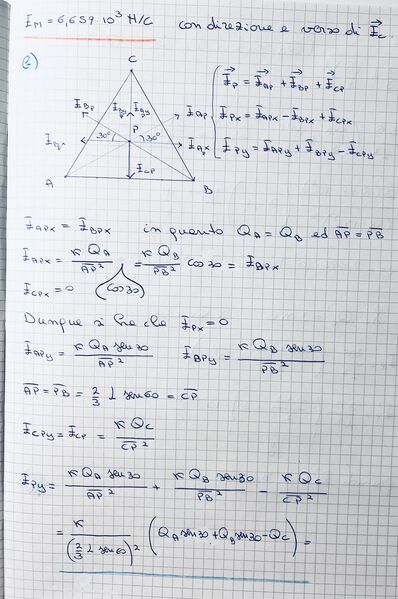 I_M = 6,659 · 10³ N/C con direzione e verso di I_C.
2)
C
I_BP I_By I_Ay I_AP
P
30° 30°
I_Bx I_Ax
I_CP
A B
I_P = I_AP + I_BP + I_CP
I_Px = I_APx - I_BPx + I_CPx
I_Py = I_APy + I_BPy - I_CPy
I_APx = I_BPx in quanto Q_A = Q_B ed AP = PB
I_APx = K Q_A / AP² (cos30) = K Q_B / PB² cos30 = I_BPx
I_CPx = 0
Dunque si ha che I_Px = 0
I_APy = K Q_A sen30 / AP² I_BPy = K Q_B sen30 / PB²
AP = PB = 2/3 L sen60 = CP
I_CPy = I_CP = K Q_C / CP²
I_Py = K Q_A sen30 / AP² + K Q_B sen30 / PB² - K Q_C / CP²
= K / (2/3 L sen60)² (Q_A sen30 + Q_B sen30 - Q_C) =